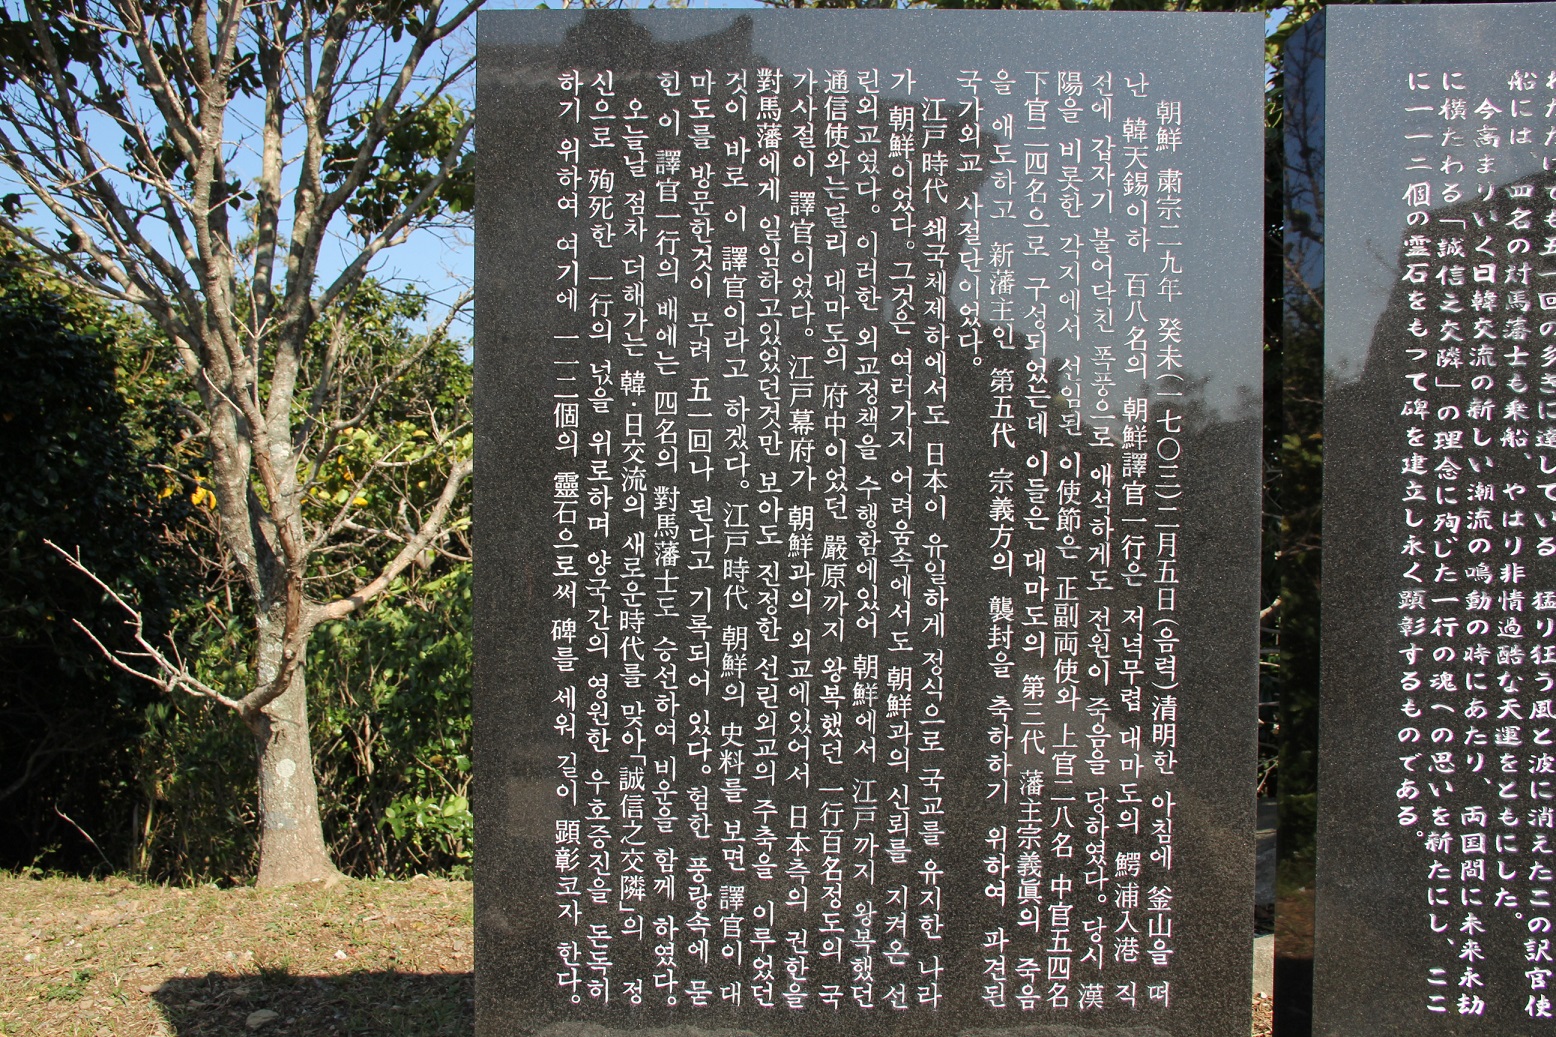 れただけでも五一回の多きに達している。猛り狂う風と波に消えたこの訳官使
船には、四名の対馬藩士も乗船、やはり非情過酷な天運をともにした。
今高まりいく日韓交流の新しい潮流の鳴動の時にあたり、両国間に未来永劫
に横たわる「誠信之交隣」の理念に殉じた一行の魂への思いを新たにし、ここ
に一一二個の霊石をもって碑を建立し永く顕彰するものである。
朝鮮 肅宗二九年 癸未(一七〇三)二月五日(음력)清明한 아침에 釜山을 떠
난 韓天錫이하 百八名의 朝鮮譯官一行은 저녁무렵 대마도의 鰐浦入港 직
전에 갑자기 불어닥친 폭풍으로 애석하게도 전원이 죽음을 당하였다. 당시 漢
陽을 비롯한 각지에서 선임된 이使節은 正副両使와 上官二八名 中官五四名
下官二四名으로 구성되었는데 이들은 대마도의 第三代 藩主宗義眞의 죽음
을 애도하고 新藩主인 第五代 宗義方의 襲封을 축하하기 위하여 파견된
국가외교 사절단이었다.
江戸時代 쇄국체제하에서도 日本이 유일하게 정식으로 국교를 유지한 나라
가 朝鮮이었다. 그것은 여러가지 어려움속에서도 朝鮮과의 신뢰를 지켜온 선
린외교였다. 이러한 외교정책을 수행함에있어 朝鮮에서 江戸까지 왕복했던
通信使와는달리 대마도의 府中이었던 嚴原까지 왕복했던 一行百名정도의 국
가사절이 譯官이었다. 江戸幕府가 朝鮮과의 외교에있어서 日本측의 권한을
對馬藩에게 일임하고있었던것만 보아도 진정한 선린외교의 주축을 이루었던
것이 바로 이 譯官이라고 하겠다. 江戸時代 朝鮮의 史料를 보면 譯官이 대
마도를 방문한것이 무려 五一回나 된다고 기록되어 있다. 험한 풍랑속에 묻
힌 이 譯官一行의 배에는 四名의 對馬藩士도 승선하여 비운을 함께 하였다.
오늘날 점차 더해가는 韓·日交流의 새로운時代를 맞아「誠信之交隣」의 정
신으로 殉死한 一行의 넋을 위로하며 양국간의 영원한 우호증진을 돈독히
하기 위하여 여기에 一一二個의 靈石으로써 碑를 세워 길이 顕彰코자 한다.